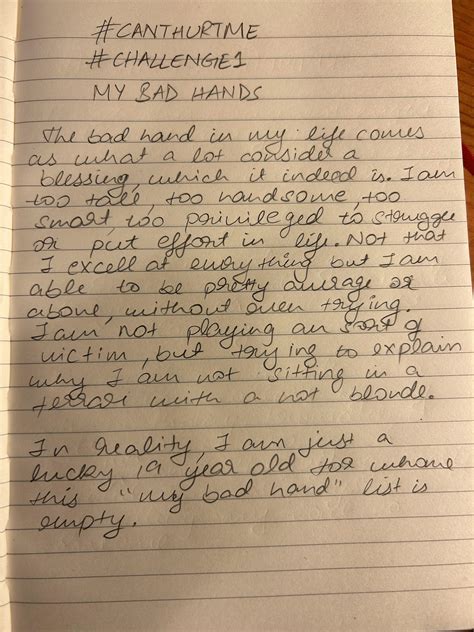 #CANTHURTME
#CHALLENGE1
MY BAD HANDS
The bad hand in my life comes
as what a lot consider a
blessing, which it indeed is. I am
too tall, too handsome, too
smart too privileged to struggle
or put effort in life. Not that
I excell at everything but I am
able to be pretty average or
above, without even trying.
I am not playing an sort of
victim, but trying to explain
why I am not sitting in a
ferrari with a hot blonde.
In reality, I am just a
lucky 19 year old for whome
this "my bad hand" list is
empty.